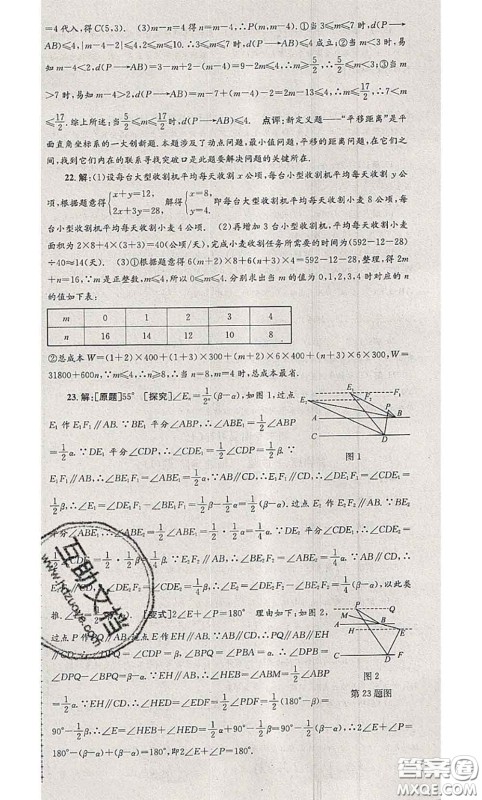 =4代入,得C(5,3). (3)m-n=4得n=m-4,∴P(m,m-4). ①当3≤m≤7时,d(P→
AB)≤4,|m-4-2|≤4,2≤m≤10.∴3≤m≤7时,d(P→AB)≤4成立;②当m<3时,易
知m-4<2,d(P→AB)=3-m+2-(m-4)=9-2m≤4,∴m≥5/2,∴5/2≤m<3;③当m
>7时,易知m-4>2,d(P→AB)=m-7+(m-4)-2=2m-13≤4,∴m≤17/2,∴7<m
≤17/2.综上所述:当5/2≤m≤17/2时,d(P→AB)≤4. 点评:新定义题——“平移距离”是平
面直角坐标系的一大创新题.本题涉及了动点问题,最小值问题,平移的距离问题,在它们之
间,找到它们内在的联系寻找突破口是此题要解决问题的关键所在.
22.解:(1)设每台大型收割机平均每天收割x公顷,每台小型收割机平均每天收割y公
顷,根据题意得{x+y=12, 2x+3y=28, 解得{x=8, y=4. 即每台大型收割机平均每天收割小麦8公顷,每
台小型收割机平均每天收割小麦4公顷. (2)再增加3台小型收割机,平均每天收割小麦
面积为2×8+4×(3+3)=40(公顷/天),完成小麦收割任务所需要的时间为(592-12-28)
÷40≈14(天). (3)①根据题意得6(m+2)×8+6(n+3)×4=592-12-28,整理,得2m
+n=16,∵m是正整数,m≤4,所以0≤m≤4.分别求出当m的值为0,1,2,3,4时对应的n
的值如下表:
m 0 1 2 3 4
n 16 14 12 10 8
②总成本W=(1+2)×400+(1+3)×300+(m+2)×6×400+(n+3)×6×300,W=
31800+600n,∵m≤4,∴当n=8,m=4时,总成本最省.
23.解:[原题]55° [探究]∠Eₙ=1/2ⁿ(β-α),如图1,过点
E₁作E₁F₁∥AB.∵BE₁平分∠ABP,∴∠ABE₁=1/2∠ABP
=1/2α.∵DE₁平分∠CDP,∴∠CDE₁=1/2∠CDP=1/2β.∵
E₁F₁∥AB,∴∠BE₁F₁=∠ABE₁=1/2α.∵AB∥CD,∴E₁F₁∥CD,∴∠DE₁F₁=∠CDE₁=
1/2β,∴∠E₁=∠DE₁F₁-∠BE₁F₁=1/2β-1/2α=1/2(β-α).过点E₂作E₂F₂∥AB.∵BE₂
平分∠ABE₁,∴∠ABE₂=1/2∠ABE₁=1/2·1/2α.∵DE₂平分∠CDE₁,∴∠CDE₂=
1/2∠CDE₁=1/2·1/2β.∵E₂F₂∥AB,∴∠E₂=1/2∠E₁=1/2·1/2(β-α),以此类
推,∠Eₙ=1/2ⁿ(β-α). [变式]2∠E+∠P=180° 理由如下:如图2,
过点P作PQ∥AB,过点E作EH∥AB.∵AB∥CD,∴PQ∥AB∥
EH∥CD,∴∠DPQ=∠CDP=β,∠BPQ=∠PBA=α,∴∠P=
∠DPQ-∠BPQ=β-α.∵EH∥CD,∴∠HED=∠EDF=1/2∠PDF=1/2(180°-β)=
90°-1/2β,∴∠E=∠HEB+∠HED=1/2α+90°-1/2β=90°-1/2(β-α),∴2∠E=
180°-(β-α)+(β-α)=180°,即2∠E+∠P=180°.
E₁ F₁
E₂
P
A B
C D
图1
P Q
M
A B
H E
C D F
图2
第23题图
互助文档
www.hdzuoye.com
答案圈
MXQE.COM